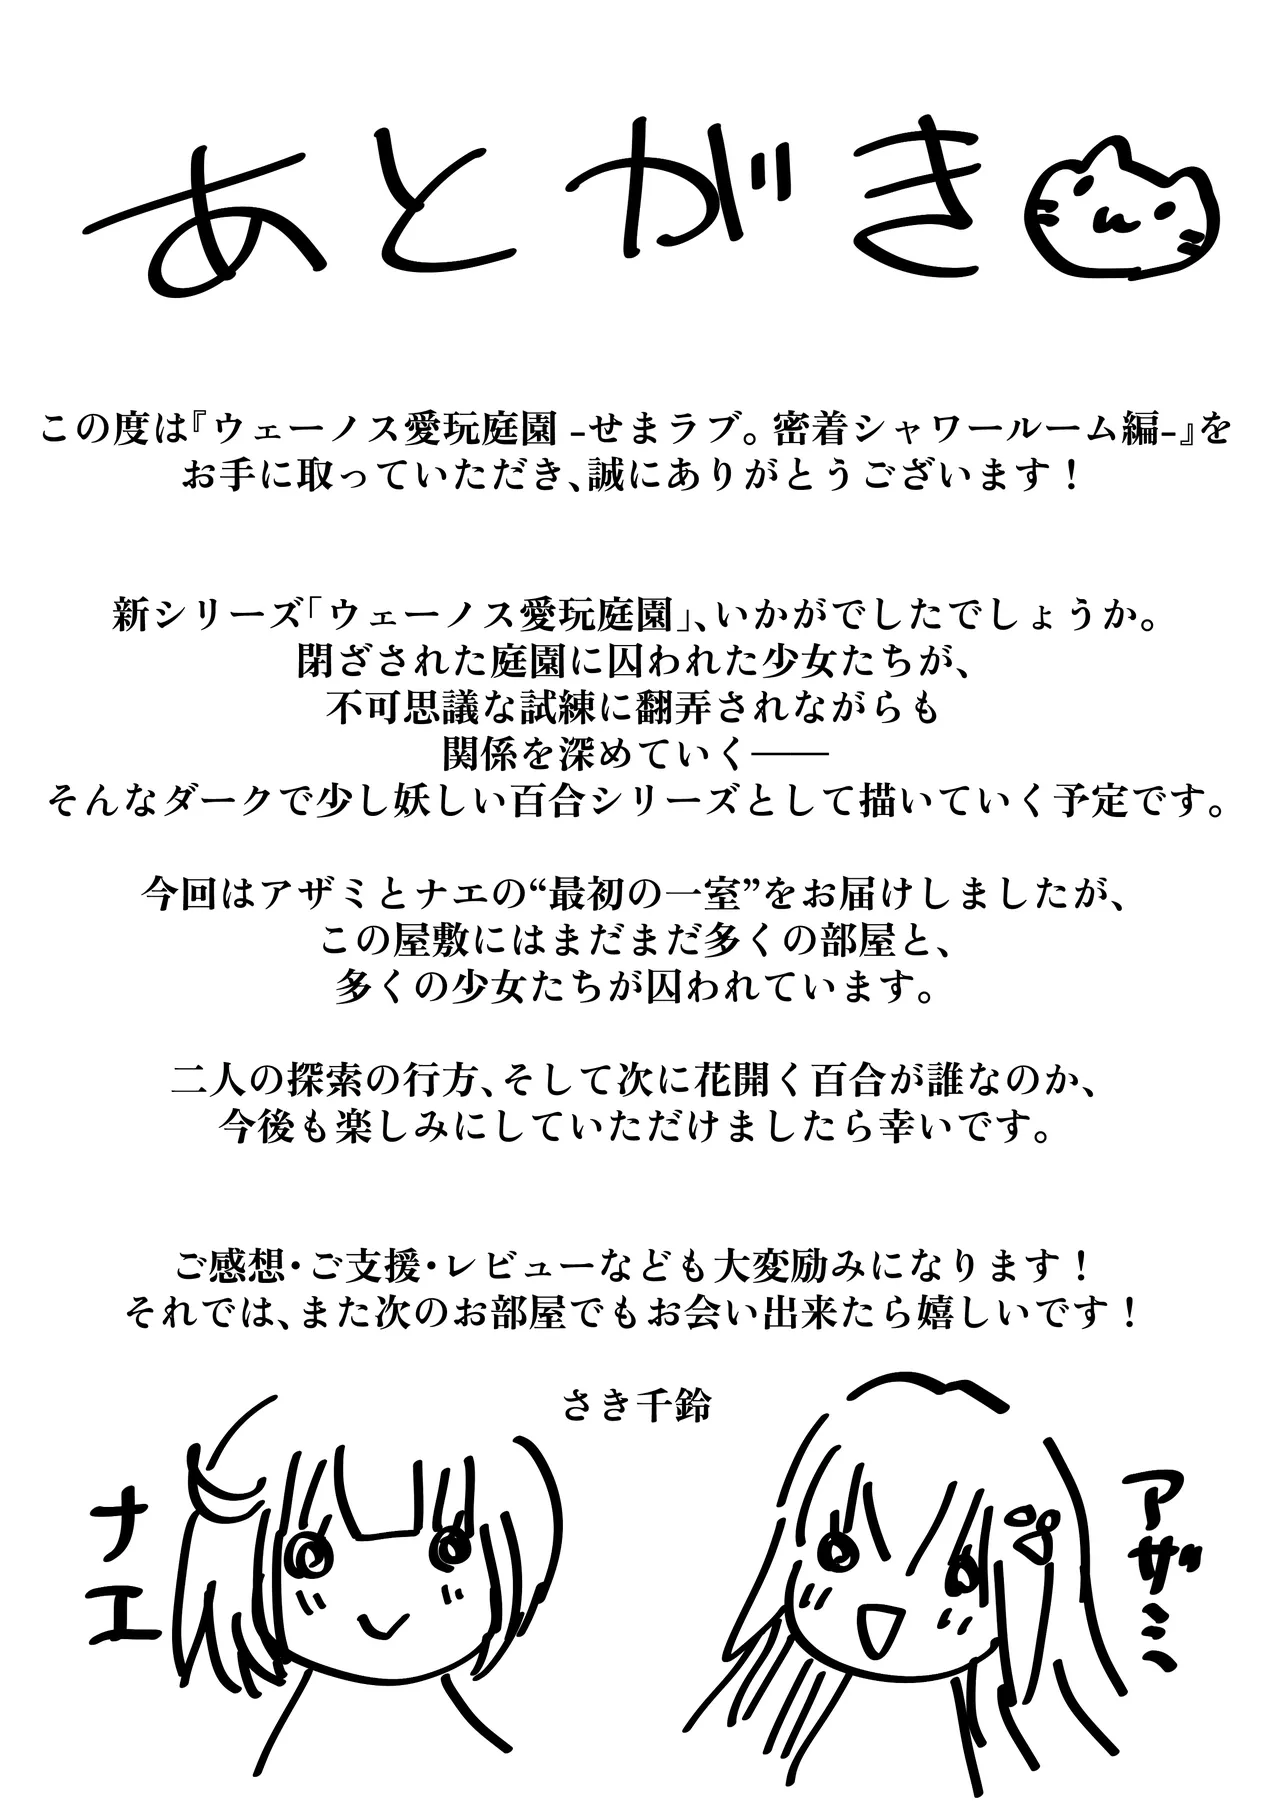 あとがき
この度は『ウェーノス愛玩庭園 -せまラブ。密着シャワールーム編-』を
お手に取っていただき、誠にありがとうございます！
新シリーズ「ウェーノス愛玩庭園」、いかがでしたでしょうか。
閉ざされた庭園に囚われた少女たちが、
不可思議な試練に翻弄されながらも
関係を深めていく――
そんなダークで少し妖しい百合シリーズとして描いていく予定です。
今回はアザミとナエの“最初の一室”をお届けしましたが、
この屋敷にはまだまだ多くの部屋と、
多くの少女たちが囚われています。
二人の探索の行方、そして次に花開く百合が誰なのか、
今後も楽しみにしていただけましたら幸いです。
ご感想・ご支援・レビューなども大変励みになります！
それでは、また次のお部屋でもお会い出来たら嬉しいです！
さき千鈴
ナエ
アザミ